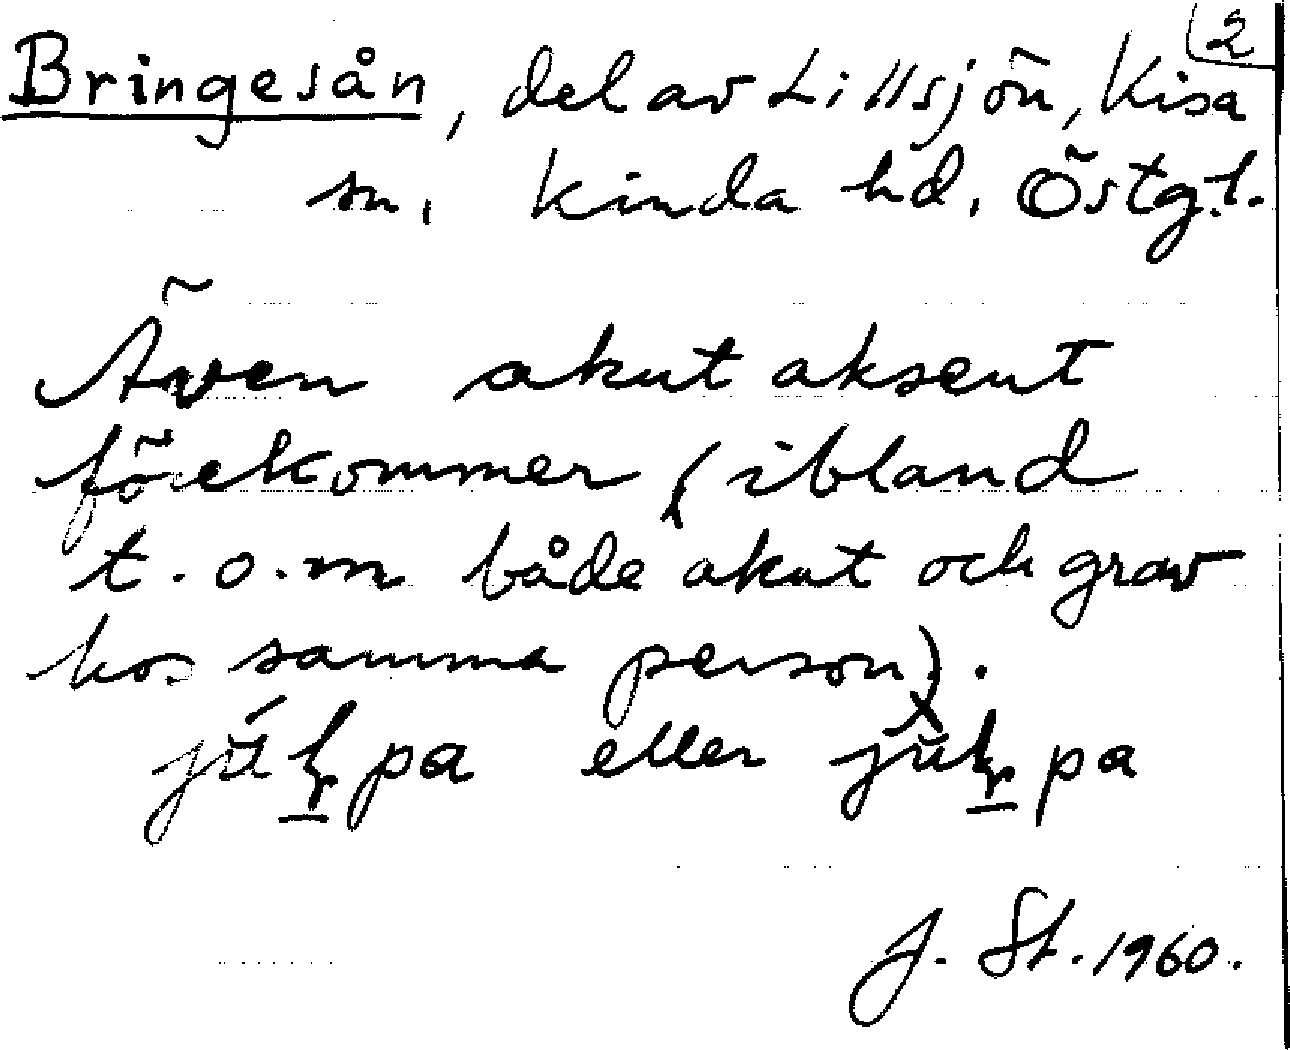 2
Bringesån, del av Lillsjön, Kisa
sn, Kinda hd, Östg.l.
Även akut aksent
förekommer (ibland
t.o.m både akut och grav
hos samma person).
eller
J. St. 1960.